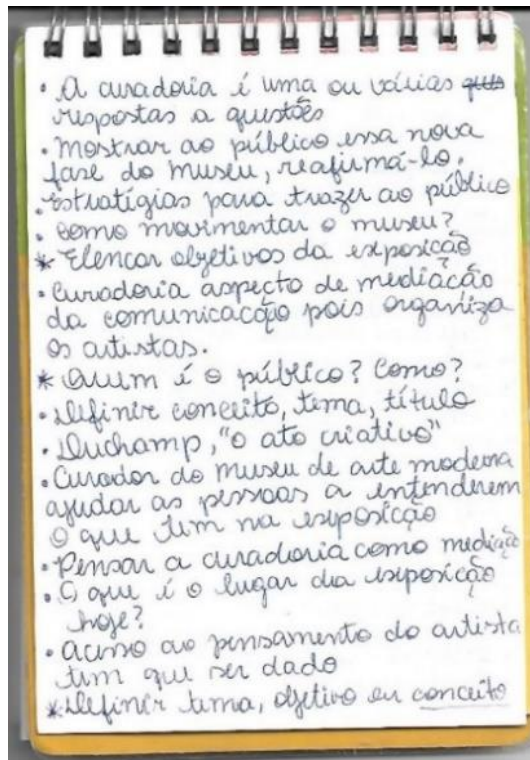 • A curadoria é uma ou várias
respostas a questões
• Mostrar ao público essa nova
fase do museu, reafirmá-lo.
• Estratégias para trazer ao público
• Como movimentar o museu?
* Elencar objetivos da exposição
• Curadoria aspecto de mediação
da comunicacção pois organiza
os artistas.
* Quem é o público? Como?
• Definir conceito, tema, título
• Duchamp, "o ato criativo"
• Curador do museu de arte moderna
ajudar as pessoas a entenderem
o que tem na exposicção
• Pensar a curadoria como mediação
• O que é o lugar da exposicção
hoje?
• acesso ao pensamento do artista
tem que ser dado
* Definir tema, objetivo ou conceito